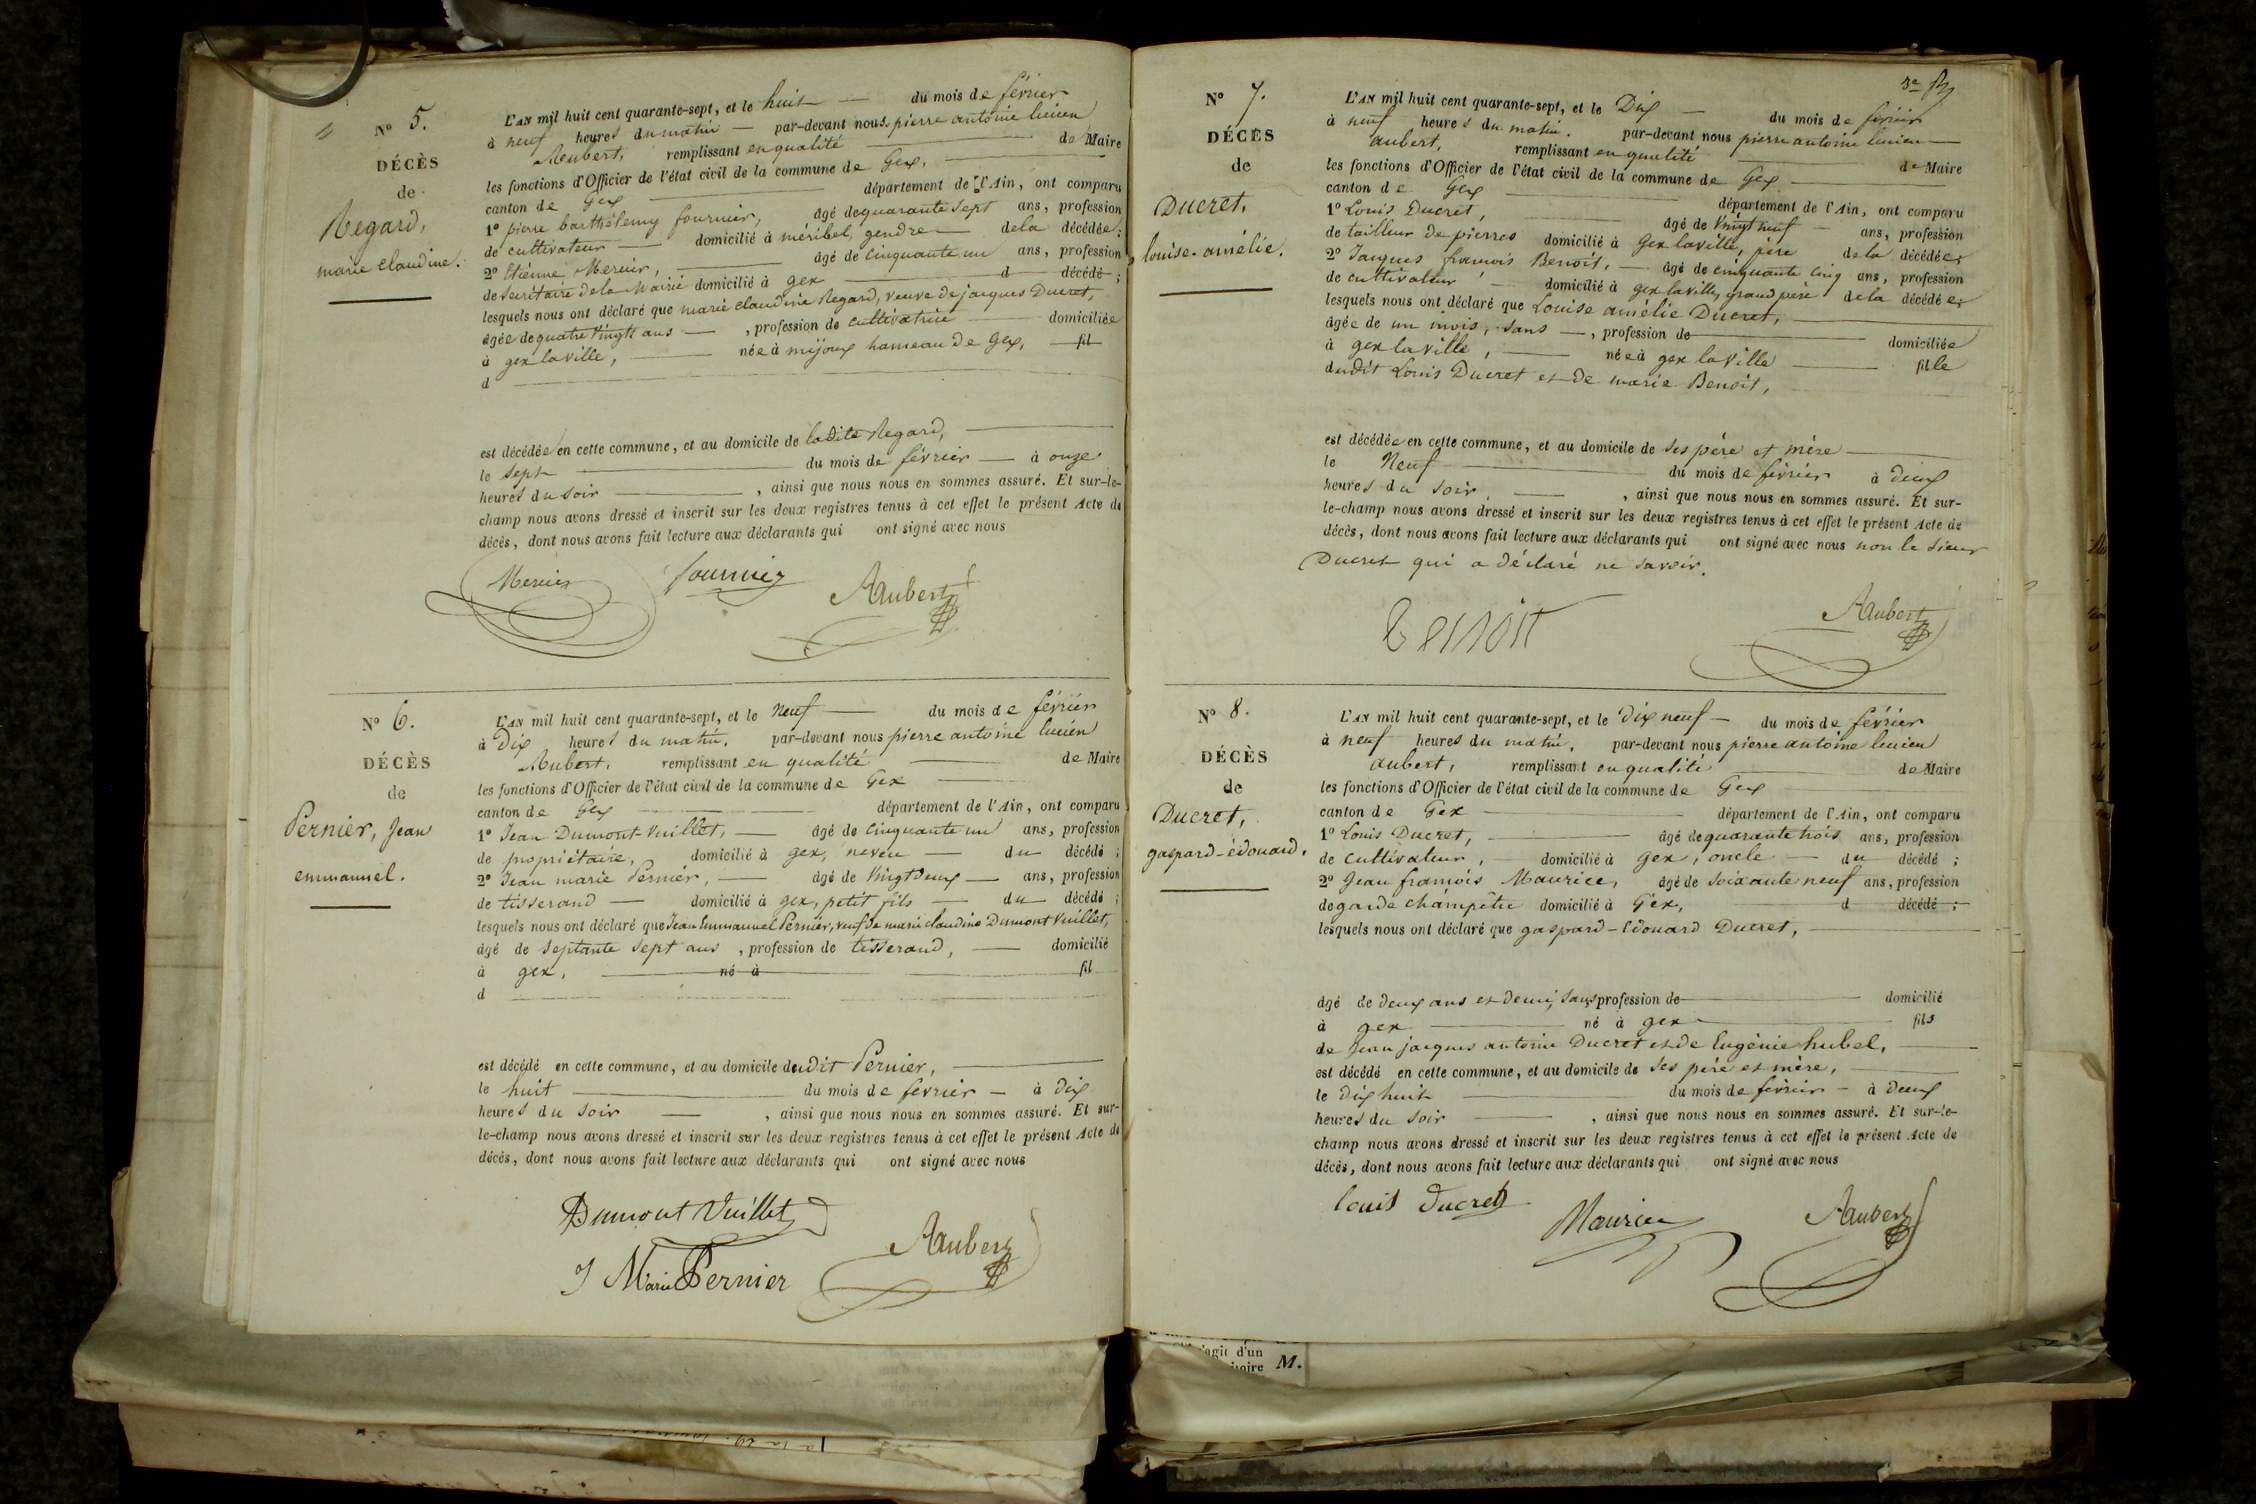 N° 5.
DÉCÈS
de
Regard,
marie claudine.
L'AN mil huit cent quarante-sept, et le huit — du mois de février
à neuf heures du matin — par-devant nous pierre antoine lucien
Aubert, remplissant en qualité — de Maire
les fonctions d'Officier de l'état civil de la commune de Gex, —
canton de Gex — département de l'Ain, ont comparu
1° pierre barthélemy fournier, âgé de quarante sept ans, profession
de cultivateur — domicilié à méribel, gendre — de la décédée;
2° Etienne Mercier, — âgé de cinquante un ans, profession
de Secrétaire de la Mairie domicilié à gex — d décédé ;
lesquels nous ont déclaré que marie claudine Regard, veuve de jacques Ducret,
agée de quatre vingts ans —, profession de cultivatrice — domiciliée
à gex la ville, — née à mijoux hameau de Gex, — fil
d —
est décédée en cette commune, et au domicile de ladite Regard, —
le sept — du mois de février — à onze
heures du soir —, ainsi que nous nous en sommes assuré. Et sur-le-
champ nous avons dressé et inscrit sur les deux registres tenus à cet effet le présent Acte de
décès, dont nous avons fait lecture aux déclarants qui ont signé avec nous
Mercier fournier Aubert
N° 6.
DÉCÈS
de
Pernier, Jean
emmanuel.
L'AN mil huit cent quarante-sept, et le Neuf — du mois de février
à Dix heures du matin, par-devant nous pierre antoine lucien
Aubert, remplissant en qualité — de Maire
les fonctions d'Officier de l'état civil de la commune de Gex —
canton de Gex — département de l'Ain, ont comparu
1° Jean Dumont Vuillet, — âgé de Cinquante un ans, profession
de propriétaire, domicilié à gex, neveu — du décédé ;
2° Jean marie Pernier, — âgé de Vingt Deux — ans, profession
de tisserand — domicilié à gex, petit fils — du décédé ;
lesquels nous ont déclaré que Jean Emmanuel Pernier, veuf de marie claudine Dumont Vuillet,
âgé de Septante Sept ans, profession de tisserand, — domicilié
à gex, — né à — fil
d —
est décédé en cette commune, et au domicile dudit Pernier, —
le huit — du mois de février — à Dix
heures du soir —, ainsi que nous nous en sommes assuré. Et sur-
le-champ nous avons dressé et inscrit sur les deux registres tenus à cet effet le présent Acte de
décès, dont nous avons fait lecture aux déclarants qui ont signé avec nous
Dumont Vuillet
J Marie Pernier Aubert
N° 7.
DÉCÈS
de
Ducret,
louise-amélie.
L'AN mil huit cent quarante-sept, et le Dix — du mois de février
à neuf heures du matin. par-devant nous pierre antoine lucien —
aubert, remplissant en qualité — de Maire
les fonctions d'Officier de l'état civil de la commune de Gex —
canton de Gex — département de l'Ain, ont comparu
1° Louis Ducret, — âgé de Vingt neuf — ans, profession
de tailleur de pierres domicilié à Gex la ville, père de la décédée;
2° Jacques françois Benoit, — âgé de cinquante cinq ans, profession
de cultivateur — domicilié à gex la ville, grand père de la décédée;
lesquels nous ont déclaré que Louise amélie Ducret, —
âgée de un mois, sans —, profession de — domiciliée
à gex la ville, — née à gex la ville — fille
dudit Louis Ducret et de marie Benoit,
est décédée en cette commune, et au domicile de ses père et mère —
le Neuf — du mois de février à deux
heures du soir, —, ainsi que nous nous en sommes assuré. Et sur-
le-champ nous avons dressé et inscrit sur les deux registres tenus à cet effet le présent Acte de
décès, dont nous avons fait lecture aux déclarants qui ont signé avec nous non le sieur
Ducret qui a déclaré ne savoir.
benoit Aubert
N° 8.
DÉCÈS
de
Ducret,
gaspard-édouard.
L'AN mil huit cent quarante-sept, et le Dix neuf — du mois de février
à neuf heures du matin, par-devant nous pierre antoine lucien
aubert, remplissant en qualité — de Maire
les fonctions d'Officier de l'état civil de la commune de Gex —
canton de Gex — département de l'Ain, ont comparu
1° Louis Ducret, — âgé de quarante trois ans, profession
de cultivateur, — domicilié à Gex, oncle — du décédé ;
2° Jean françois Maurice, âgé de soixante neuf ans, profession
de garde champêtre domicilié à Gex, — d décédé ;
lesquels nous ont déclaré que gaspard-Edouard Ducret, —
âgé de deux ans et demi, sans profession de — domicilié
à gex — né à gex — fils
de Jean jacques antoine Ducret et de Eugénie hubel, —
est décédé en cette commune, et au domicile de ses père et mère, —
le dix huit — du mois de février — à deux
heures du soir —, ainsi que nous nous en sommes assuré. Et sur-le-
champ nous avons dressé et inscrit sur les deux registres tenus à cet effet le présent Acte de
décès, dont nous avons fait lecture aux déclarants qui ont signé avec nous
louis ducret Maurice Aubert
s'agit d'un
M.